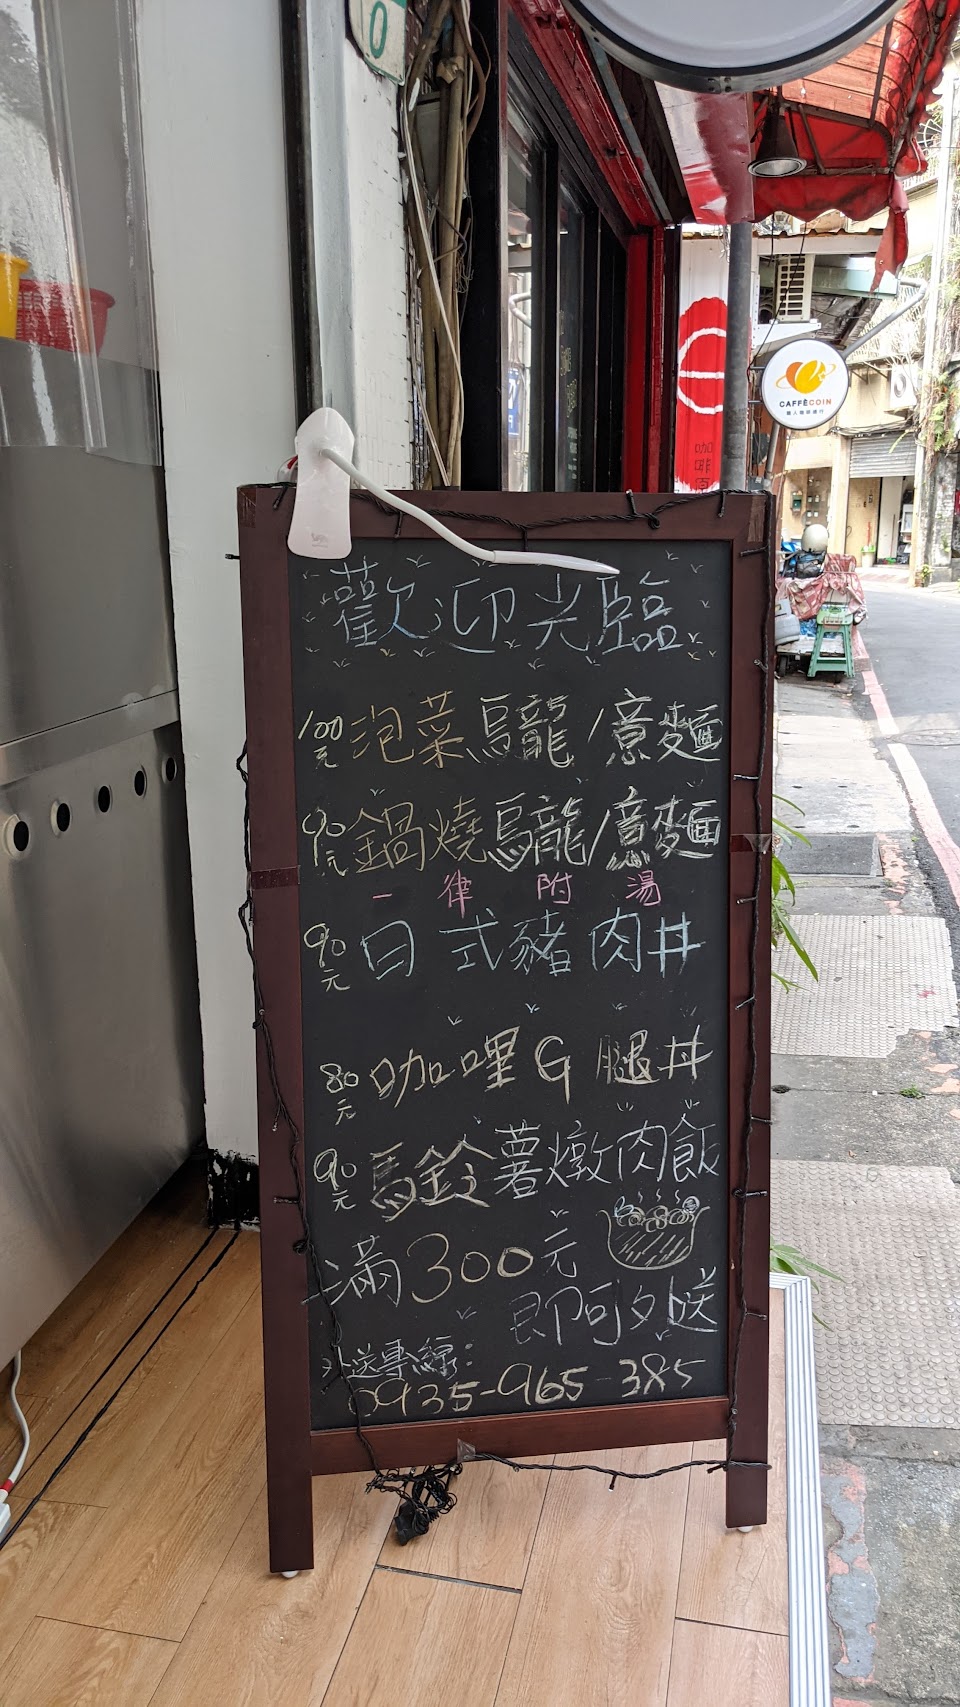 0
CAFFÈCOIN
職人咖啡應行
咖啡
歡迎光臨
100元 泡菜烏龍/意麵
90元 鍋燒烏龍/意麵
一律附湯
90元 日式豬肉丼
80元 咖哩G腿丼
90元 馬鈴薯燉肉飯
滿300元
即可外送
外送專線:
0935-965-385